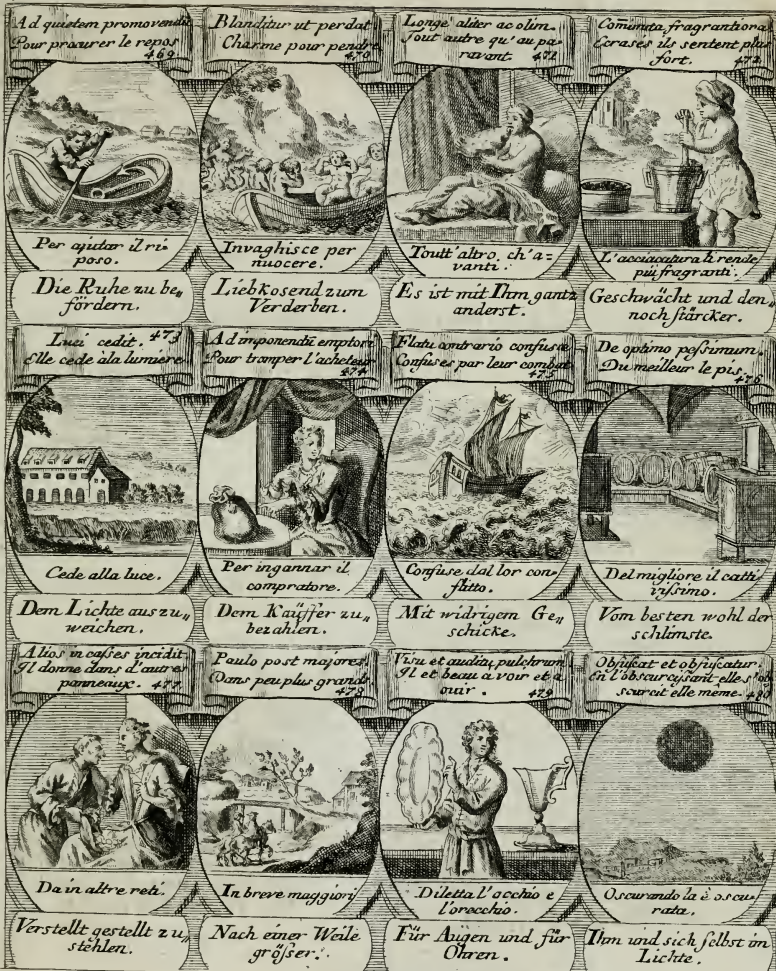 Ad quietem promovendā
Pour procurer le repos
469
Per ajutar il ri-
poso.
Die Ruhe zu be„
fördern.
Blanditur ut perdat
Charme pour pendre
470
Invaghisce per
nuocere.
Liebkosend zum
Verderben.
Longè aliter ac olim.
Tout autre qu'au pa-
ravant. 471
Toutt'altro ch'a-
vanti.
Es ist mit Ihm gantz
anderst.
Cōminuta fragrantiora
Ecrasés ils sentent plus
fort. 472
L'acciacatura li rende
più fragranti.
Geschwächt und den„
noch stärcker.
Luci cedit. 473
Elle cede àla lumiere
Cede alla luce.
Dem Lichte auszu„
weichen.
Ad imponendū emptori
Pour tromper l'acheteur
474
Per ingannar il
compratore.
Dem Kaüffer zu„
bezahlen.
Flatu contrario confusæ
Confuses par leur combat
475
Confuse dal lor con-
flitto.
Mit widrigem Ge„
schicke.
De optimo pessimum.
Du meilleur le pis. 476
Del migliore il catti
vissimo.
Vom besten wohl der
schlimste.
Alios in casses incidit
Il donne dans d'autres
panneaux. 477
Da in altre reti.
Verstellt gestellt zu„
stehlen.
Paulo post majores
Dans peu plus grands
478
In breve maggiori
Nach einer Weile
grösser.
Visu et auditu pulchrum.
Il et beau a voir et a
ouir. 479
Diletta l'occhio e
l'orecchio.
Für Augen und für
Ohren.
Obfuscat et obfuscatur.
En l'obscurcissant elle s'ob
scurcit elle même. 480
Oscurando la è oscu-
rata.
Ihm und sich selbst im
Lichte.